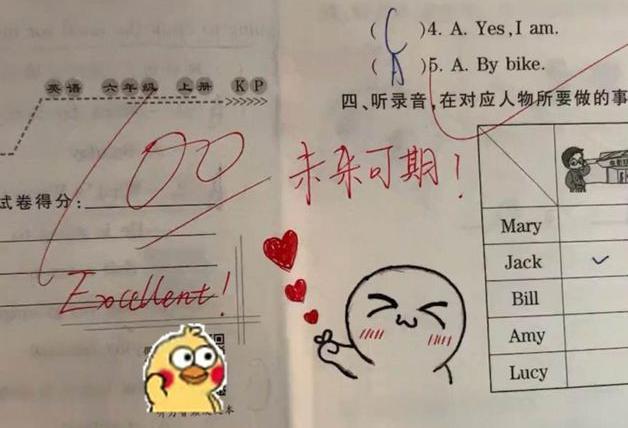 英语 六年级 上册 KP
试卷得分:
100
Excellent!
未来可期!
( C )4. A. Yes, I am.
( A )5. A. By bike.
四、听录音,在对应人物所要做的事
Mary
Jack ✓
Bill
Amy
Lucy